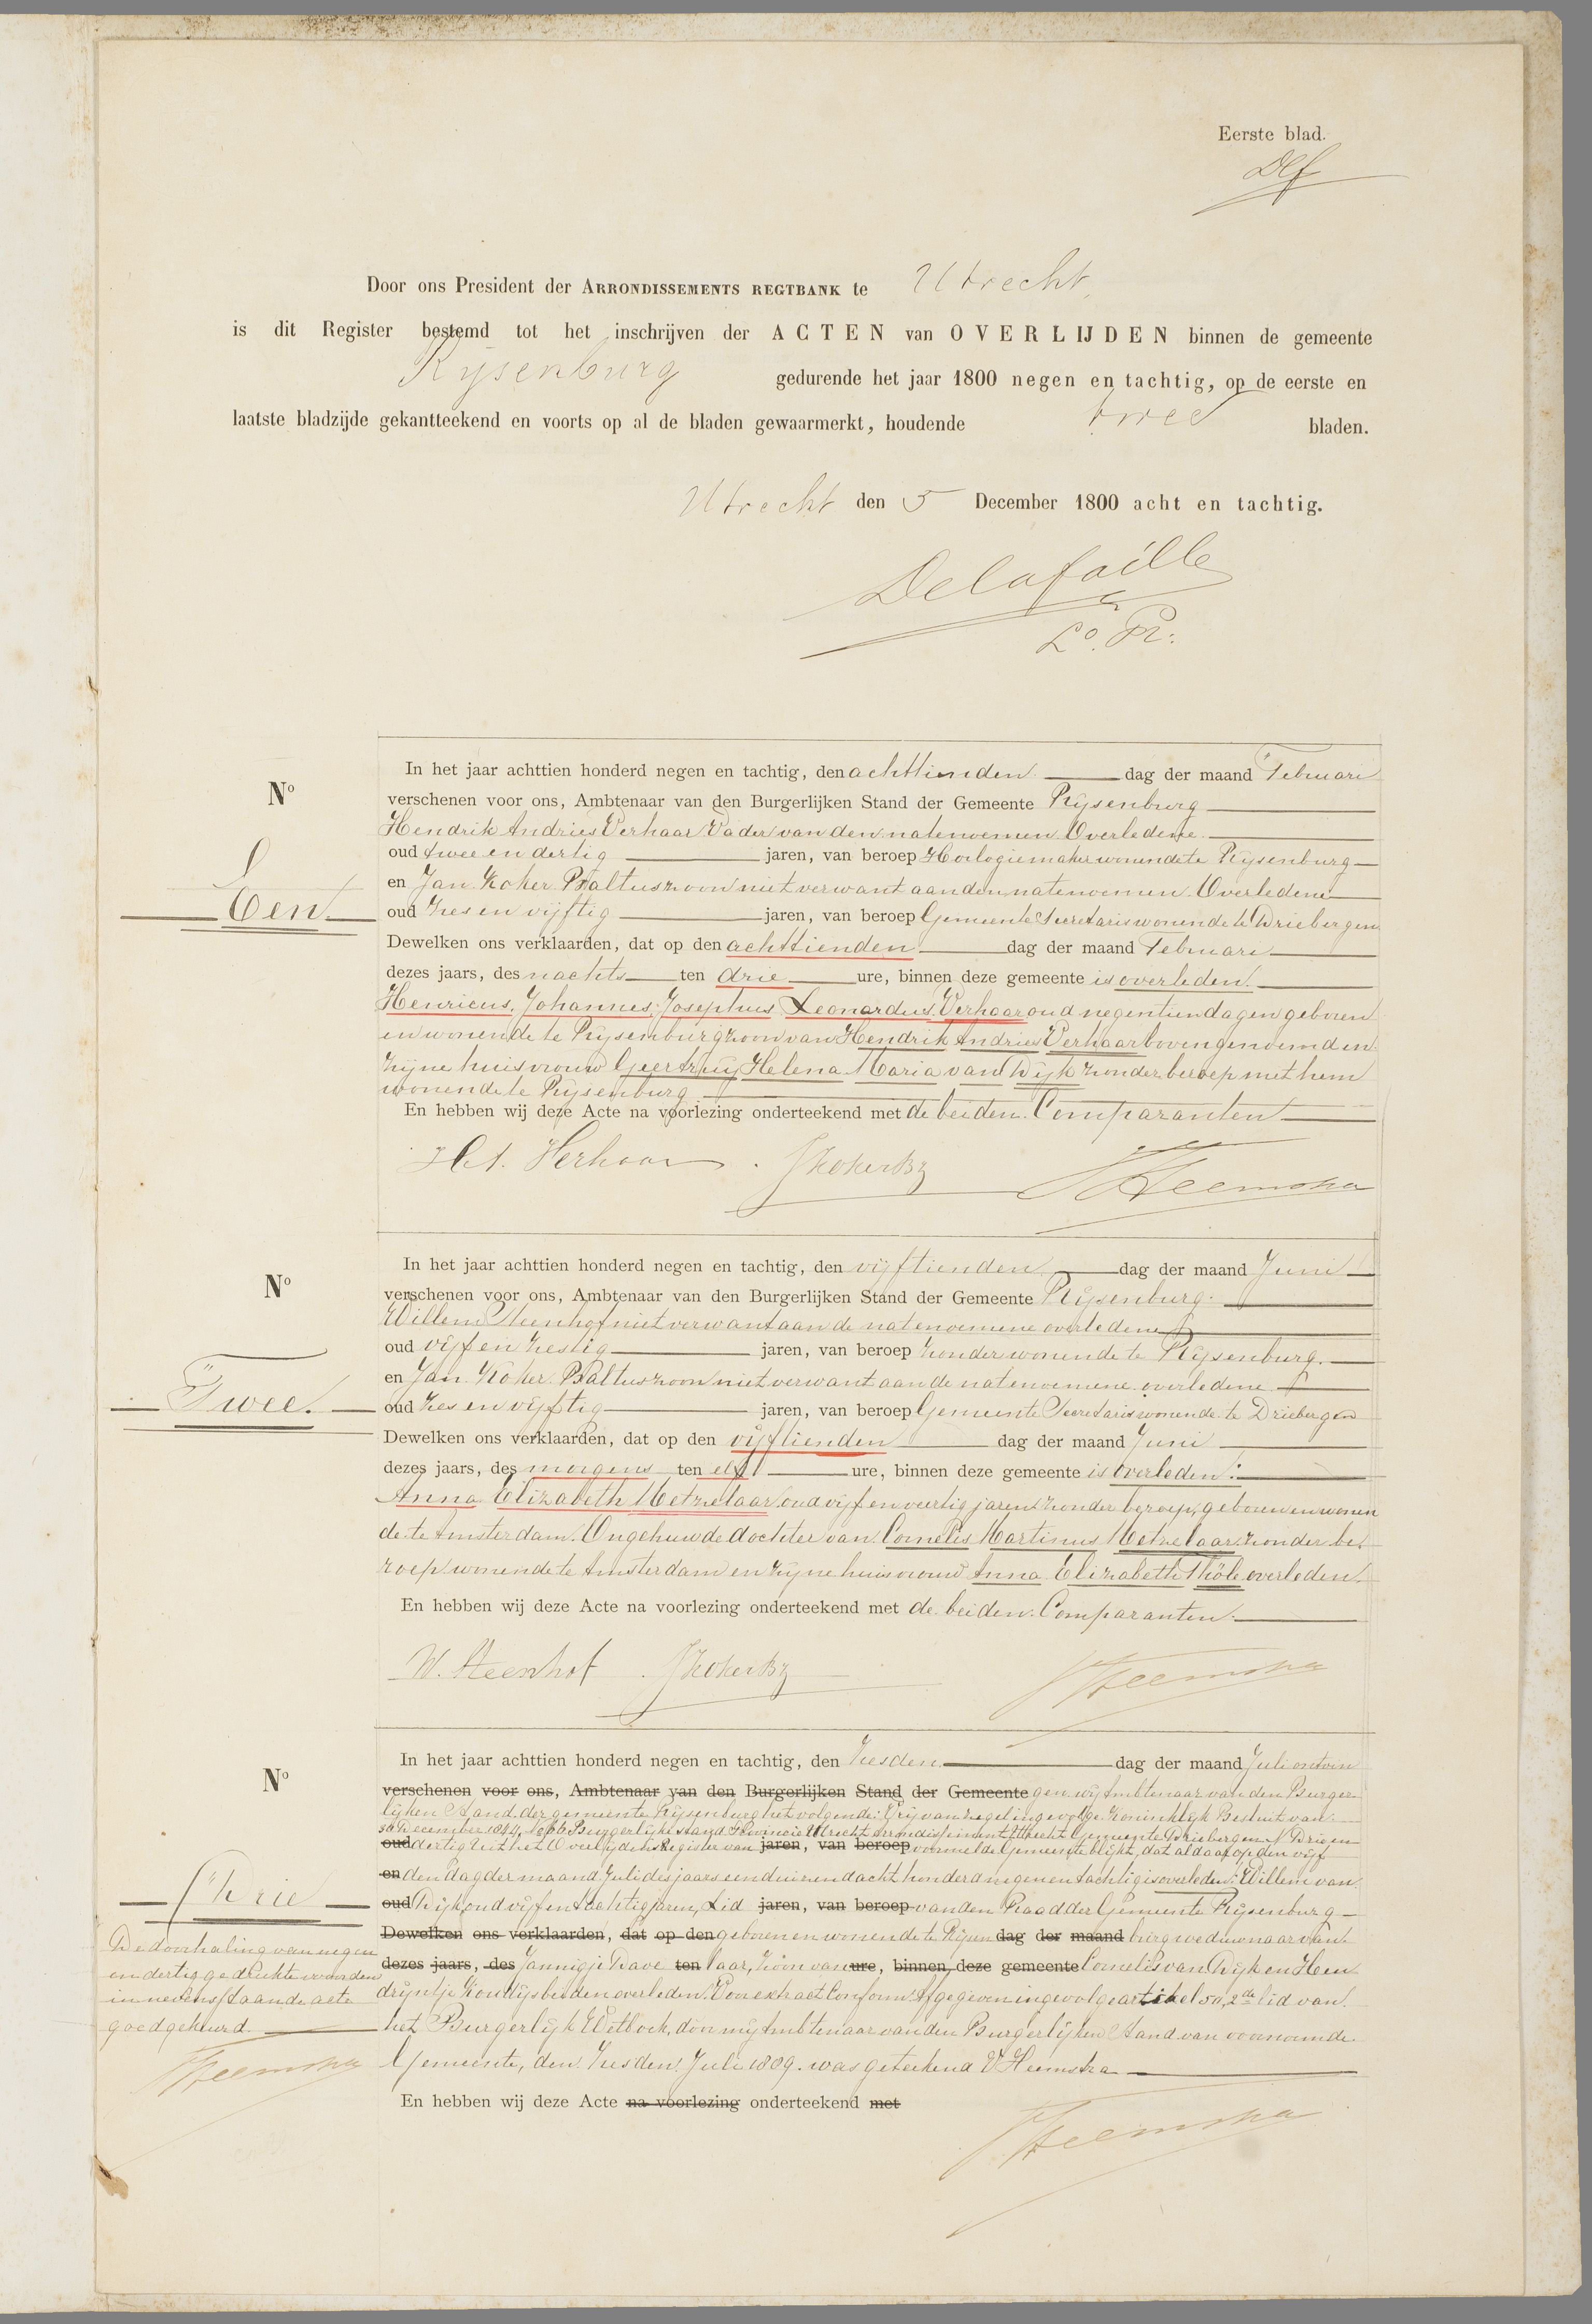 Eerste blad.
Dlf
Door ons President der ARRONDISSEMENTS REGTBANK te Utrecht,
is dit Register bestemd tot het inschrijven der ACTEN van OVERLIJDEN binnen de gemeente
Rijsenburg gedurende het jaar 1800 negen en tachtig, op de eerste en
laatste bladzijde gekantteekend en voorts op al de bladen gewaarmerkt, houdende twee bladen.
Utrecht den 5 December 1800 acht en tachtig.
Delafaille
Lo. Pr.
No
Een
In het jaar achttien honderd negen en tachtig, den achttienden dag der maand Februari
verschenen voor ons, Ambtenaar van den Burgerlijken Stand der Gemeente Rijsenburg
Hendrik Andries Verhaar Vader van den natenoemen Overledene
oud twee en dertig jaren, van beroep Horlogiemaker wonende te Rijsenburg
en Jan Koker Baltuszoon niet verwant aan den natenoemen Overledene
oud zes en vijftig jaren, van beroep Gemeente Secretaris wonende te Driebergen
Dewelken ons verklaarden, dat op den achttienden dag der maand Februari
dezes jaars, des nachts ten drie ure, binnen deze gemeente is overleden.
Henricus, Johannes, Josephus Leonardus, Verhaar oud negentien dagen geboren
en wonende te Rijsenburg zoon van Hendrik Andries Verhaar bovengenoemd en
zijne huisvrouw Geertruij Helena Maria van Dijk zonder beroep met hem
wonende te Rijsenburg
En hebben wij deze Acte na voorlezing onderteekend met de beiden Comparanten
H A. Verhaar. JKoker Bz VHeemstra
No
Twee.
In het jaar achttien honderd negen en tachtig, den vijftienden dag der maand Juni
verschenen voor ons, Ambtenaar van den Burgerlijken Stand der Gemeente Rijsenburg.
Willem Steenhof niet verwant aan de natenoemene overledene
oud vijf en zestig jaren, van beroep zonder wonende te Rijsenburg.
en Jan Koker Baltuszoon niet verwant aan de natenoemene overledene
oud zes en vijftig jaren, van beroep Gemeente Secretaris wonende te Driebergen
Dewelken ons verklaarden, dat op den vijftienden dag der maand Juni
dezes jaars, des morgens ten elf ure, binnen deze gemeente is overleden:
Anna Elizabeth Metzelaar oud vijf en veertig jaren zonder beroep, geboren en wonen
de te Amsterdam. Ongehuwde dochter van Cornelis Martinus Metzelaar zonder be
roep wonende te Amsterdam en zijne huisvrouw Anna Elizabeth Thöle overleden.
En hebben wij deze Acte na voorlezing onderteekend met de beiden Comparanten.
W. Steenhof. JKoker Bz VHeemstra
No
Drie
In het jaar achttien honderd negen en tachtig, den Zesden dag der maand Juli ontvin
verschenen voor ons, Ambtenaar van den Burgerlijken Stand der Gemeente gen wij Ambtenaar van den Burger
lijken Stand der gemeente Rijsenburg het volgende: Vrij van zegel ingevolge Koninklijk Besluit van
Burgerlijke stand Provincie Utrecht Arrondissement Utrecht Gemeente Driebergen N Drie en
oud dertig Uit het Overlijdens Register van jaren, van beroep voormelde Gemeente blijkt, dat aldaar op den vijf
en den dag der maand Juli des jaars eenduizend acht honderd negen en tachtig is overleden: Willem van
oud Dijk, oud vijf en tachtig jaren, Lid jaren, van beroep van den Raad der Gemeente Rijsenburg
Dewelken ons verklaarden, dat op den geboren en wonende te Rijsen dag der maand burg weduwnaar van
dezes jaars, des Jannigje Dave ten laar, zoon van ure, binnen deze gemeente Cornelis van Dijk en Hen
drijntje beiden overleden. Voor extract Conform. Afgegeven ingevolge artikel 50, 2de lid van
het Burgerlijk Wetboek, door mij Ambtenaar van den Burgerlijken Stand van voornoemde
Gemeente, den Zesden Juli 1889. was geteekend V Heemstra
En hebben wij deze Acte na voorlezing onderteekend met
VHeemstra
De doorhaling van negen
en dertig gedrukte woorden
in nevenstaande acte
goedgekeurd.
VHeemstra